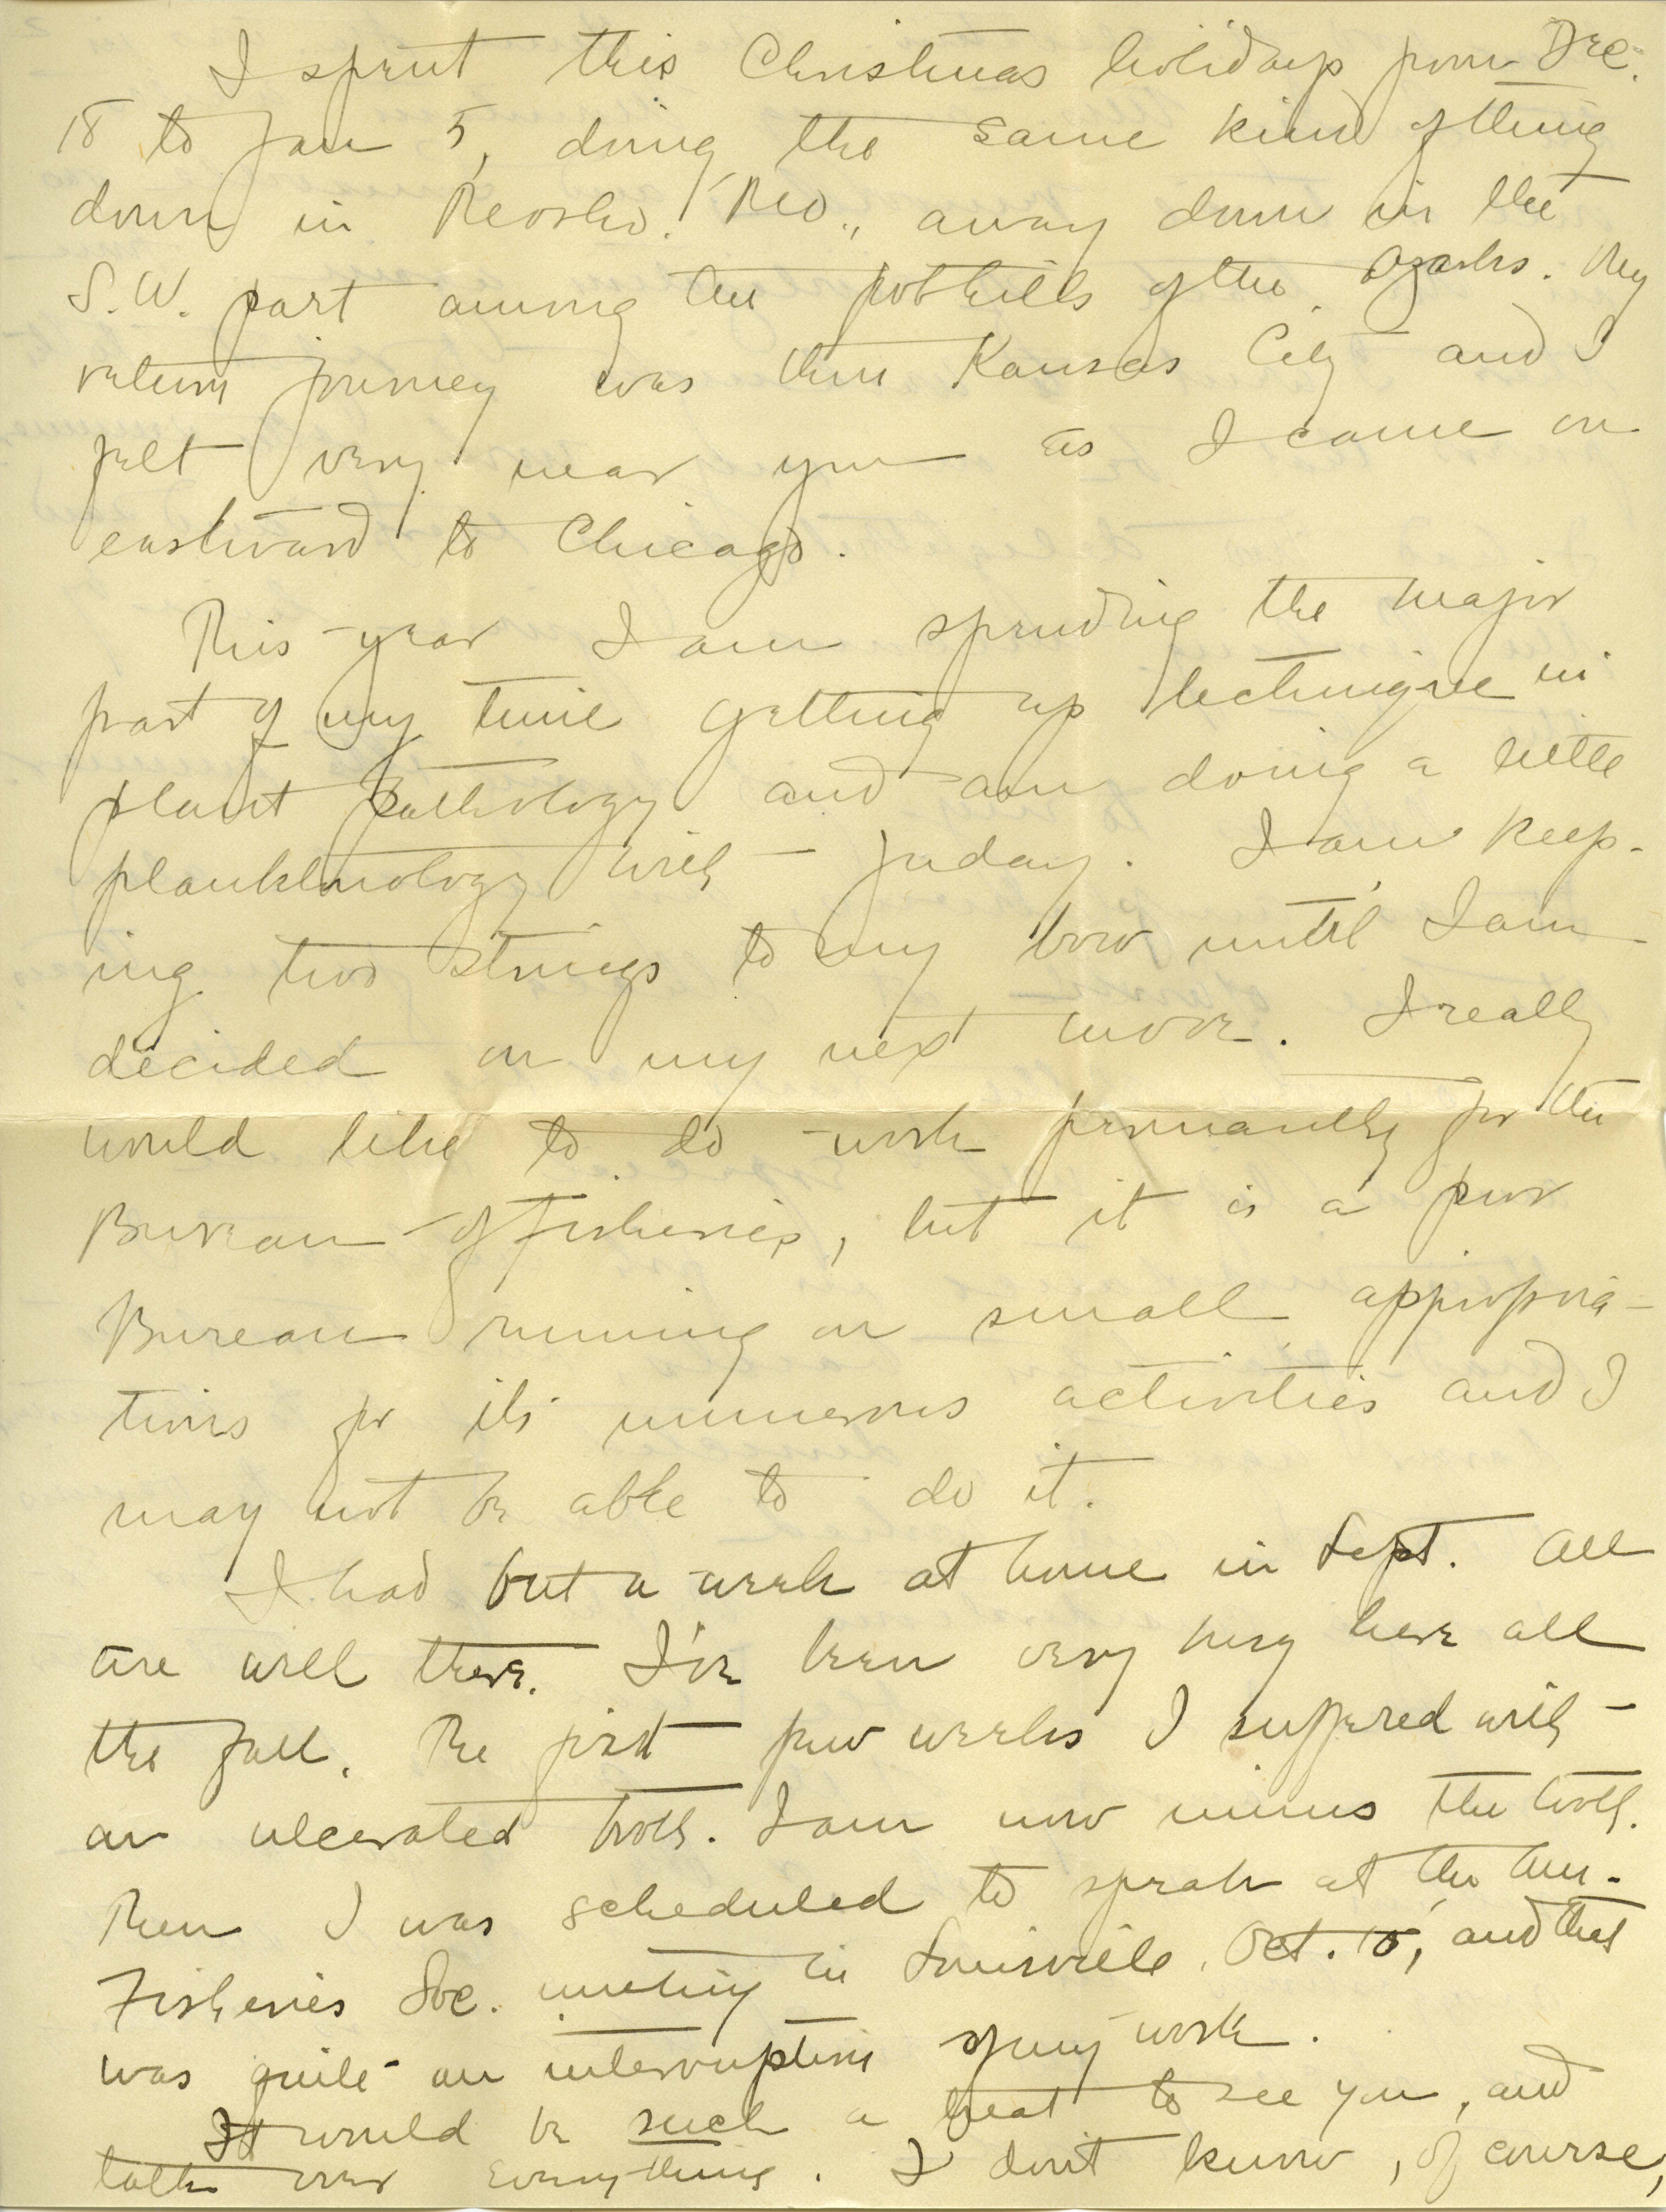 I spent this Christmas holidays from Dec.
18 to Jan 5, doing the same kind of thing
down in Neosho, Mo., away down in the
S.W. part among the foothills of the Ozarks. My
return journey was thru Kansas City and I
felt very near you as I came on
eastward to Chicago.
This year I am spending the major
part of my time getting up technique in
plant pathology and am doing a little
planktnology with Juday. I am keep-
ing two strings to my bow until I am
decided on my next move. I really
would like to do work permanently for the
Bureau of Fisheries, but it is a poor
Bureau running on small appropria-
tions for its numerous activities and I
may not be able to do it.
I had but a week at home in Sept. All
are well there. I've been very busy here all
the fall. The first few weeks I suffered with
an ulcerated tooth. I am now minus the tooth.
Then I was scheduled to speak at the Am.
Fisheries Soc. meeting in Louisville, Oct. 15, and that
was quite an interruption of my work.
It would be such a treat to see you, and
talk over everything. I don't know, of course,